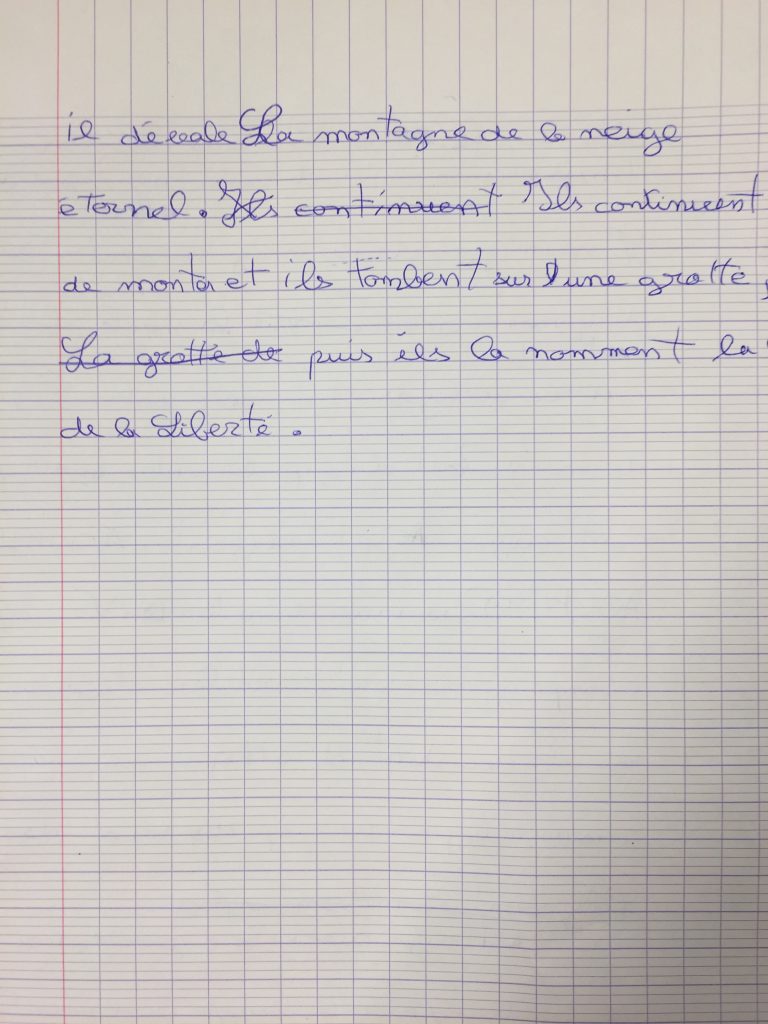 il dévale La montagne de la neige
éternel. Ils continuent Ils continuent
de monter et ils tombent sur une grotte,
La grotte de puis ils la nomment la
de la Liberté.